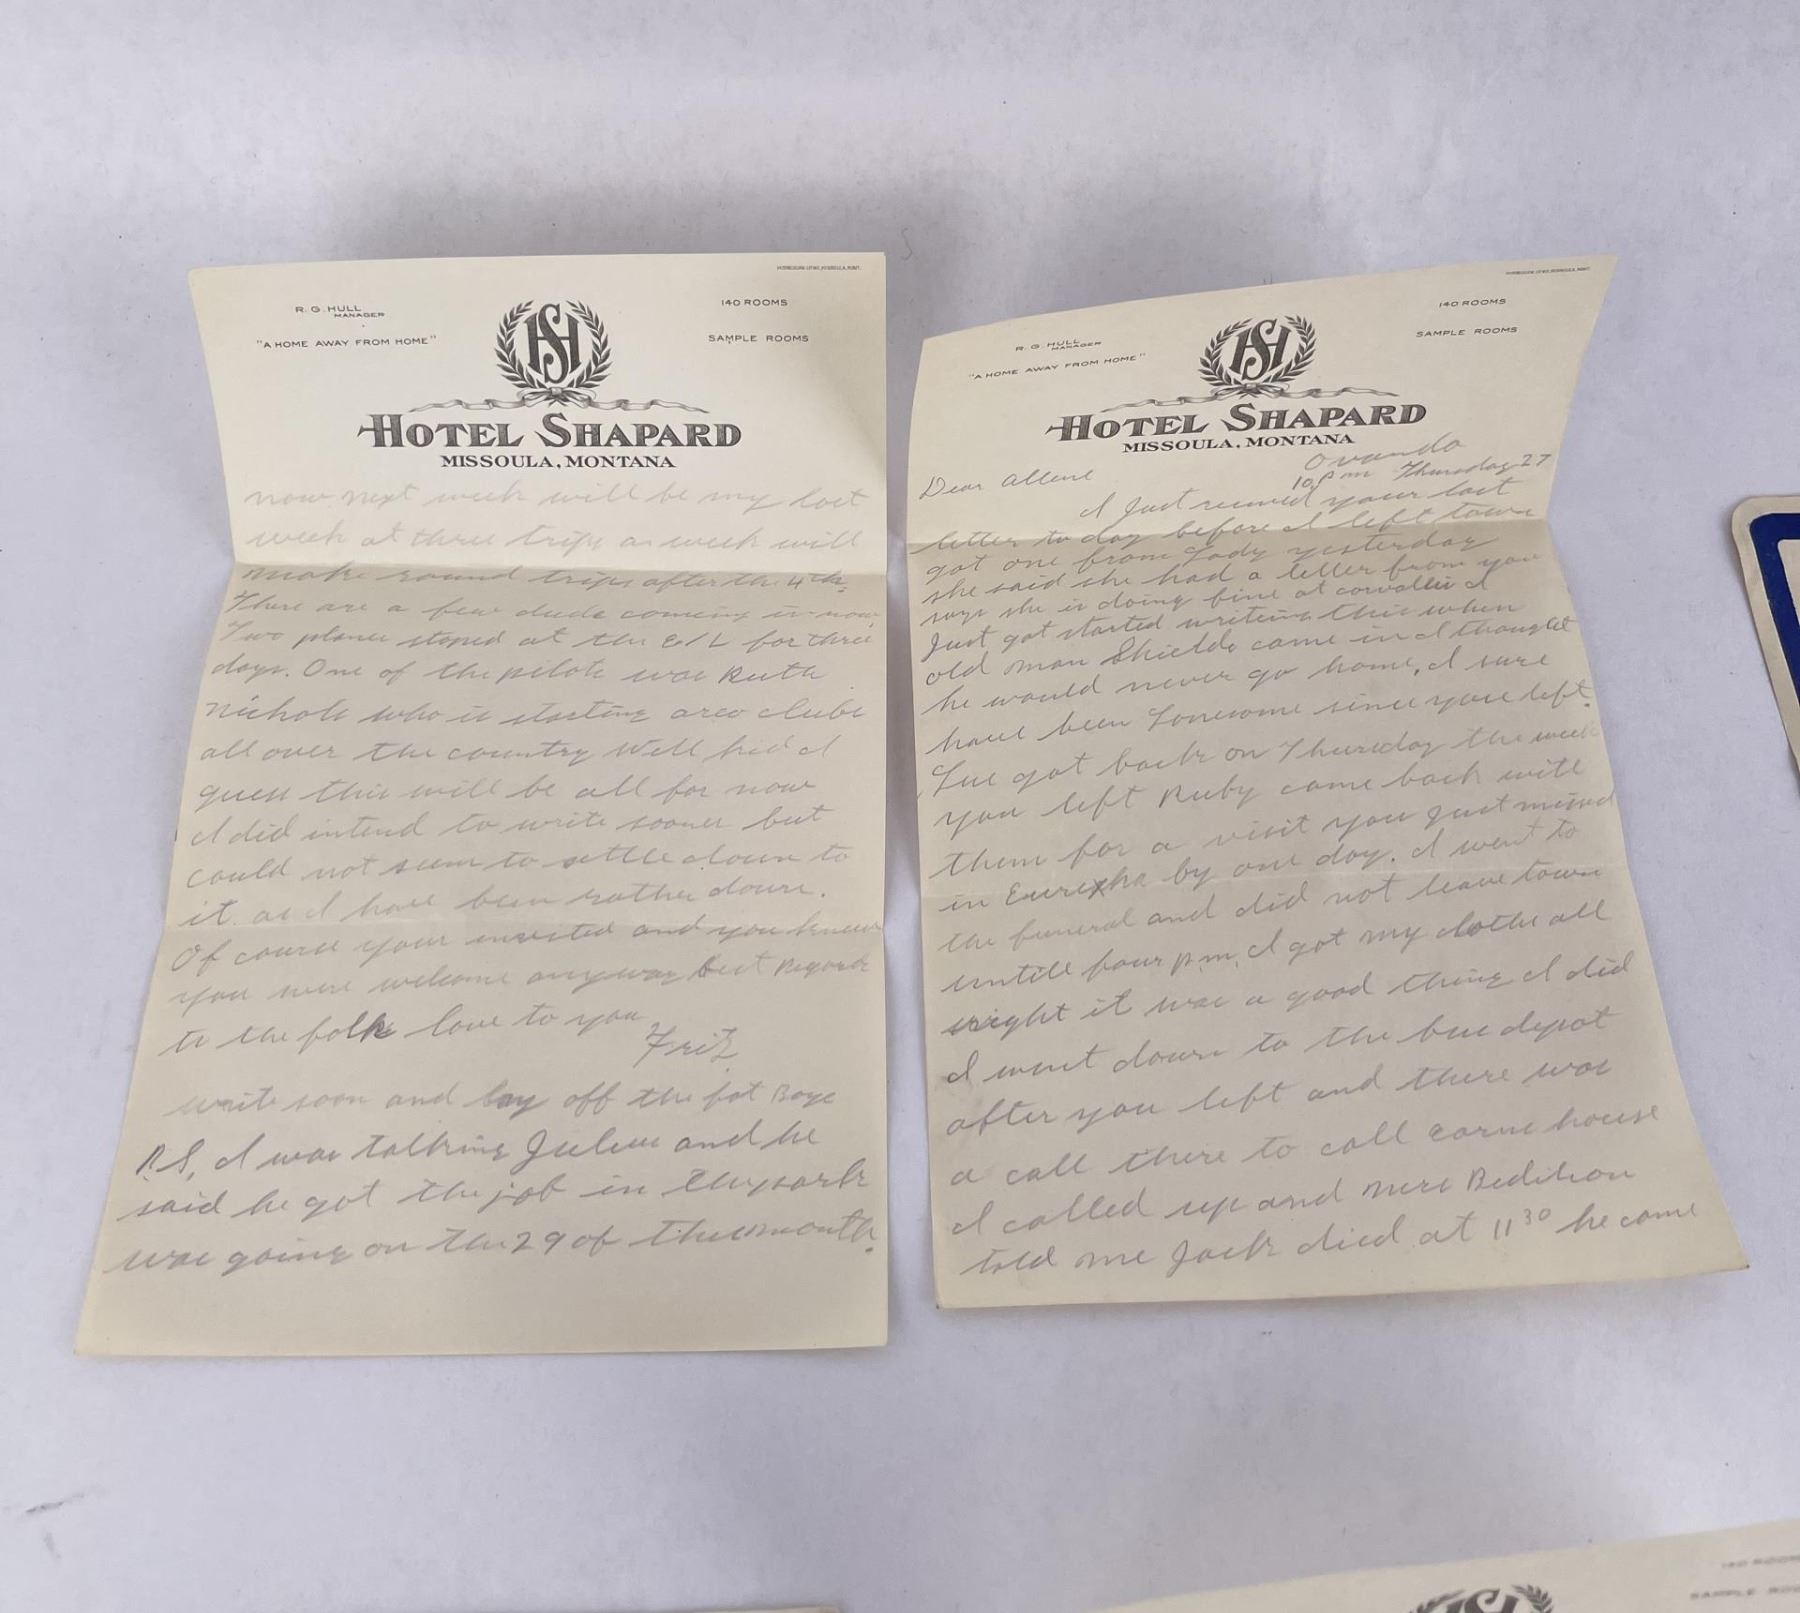 HENDERSON LITHO, MISSOULA, MONT.
R. G. HULL
MANAGER
"A HOME AWAY FROM HOME"
140 ROOMS
SAMPLE ROOMS
HS
HOTEL SHAPARD
MISSOULA, MONTANA
now next week will be my last
week at three trips a week will
make round trips after the 4th.
There are a few dudes coming in now
Two planes stoped at the E/L for three
days. One of the pilots was Ruth
Nichols who is starting areo clubs
all over the country Well kid I
guess this will be all for now
I did intend to write sooner but
could not seem to settle down to
it as I have been rather down.
Of course your invited and you know
you were welcome anyway best regards
to the folks love to you
Fritz
write soon and lay off the fat Boys
P.S. I was talking Julius and he
said he got the job in the park
was going on the 29 of the month.
R. G. HULL
MANAGER
"A HOME AWAY FROM HOME"
140 ROOMS
SAMPLE ROOMS
HS
HOTEL SHAPARD
MISSOULA, MONTANA
Ovando
10 Pm Thursday 27
Dear Allene
I Just received your last
letter to day before I left town
got one from Lady yesterday
she said she had a letter from you
says she is doing fine at corvallis I
Just got started writeing this when
old man Shields came in I thought
he would never go home, I sure
have been Lonesome since you left.
got back on Thursday the week
you left Ruby came back with
them for a visit you Just missed
in Eureka by one day. I went to
the funeral and did not leave town
untill four p.m. I got my clothes all
right it was a good thing I did
I went down to the bus depot
after you left and there was
a call there to call house
I called up and Mrs
told me Jack died at 11 30 he came
140 ROOMS
SAMPLE ROO